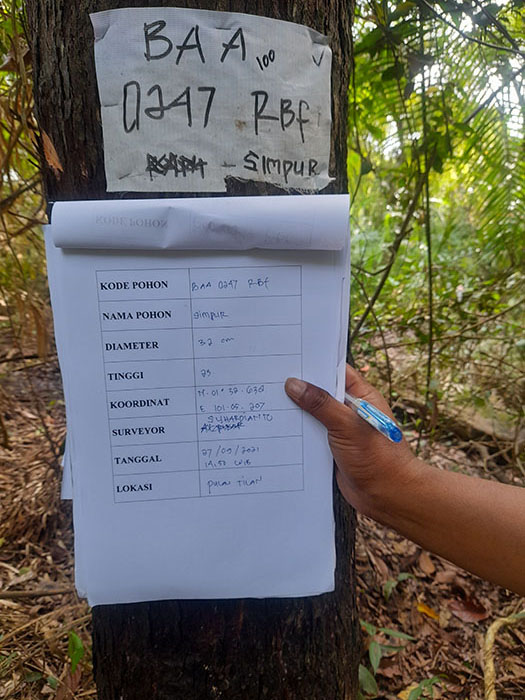 BAA 100
0247 RBf
SIMPUR
KODE POHON BAA 0247 RBf
NAMA POHON SIMPUR
DIAMETER 32 cm
TINGGI 25
KOORDINAT N. 01° 38. 636
E 101.09. 207
SURVEYOR SUHARDIANTO
TANGGAL 27/09/2021
14.57 WIB
LOKASI PULAU TILAN